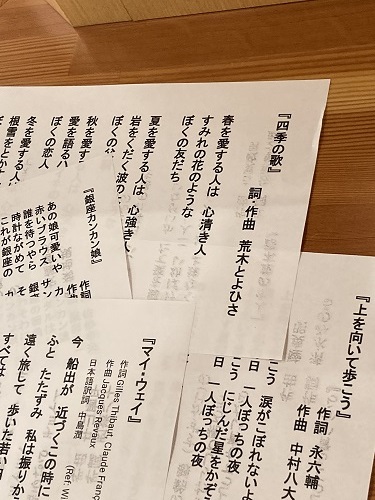 『四季の歌』
詞・作曲 荒木とよひさ
春を愛する人は 心清き人
すみれの花のような
ぼくの友だち
夏を愛する人は 心強き人
岩をくだく波の
ぼくの
秋を愛す
愛を語るハ
ぼくの恋人
冬を愛する人
根雪をとか
『銀座カンカン娘』
作詞
作曲
あの娘可愛いや カ
赤いブラウス サン
誰を待つやら 銀座
時計ながめて
これが銀座の カ
『上を向いて歩こう』
作詞 永六輔
作曲 中村八
こう 涙がこぼれないよ
日 一人ぼっちの夜
こう にじんだ星をかぞ
日 一人ぼっちの夜
『マイ・ウェイ』
作詞 Gilles Thibaut, Claude Franç
作曲 Jacques Revaux
日本語訳詞 中島潤
今 船出が 近づくこの時に
ふと たたずみ 私は振りか
遠く旅して 歩いた若い日
すべて